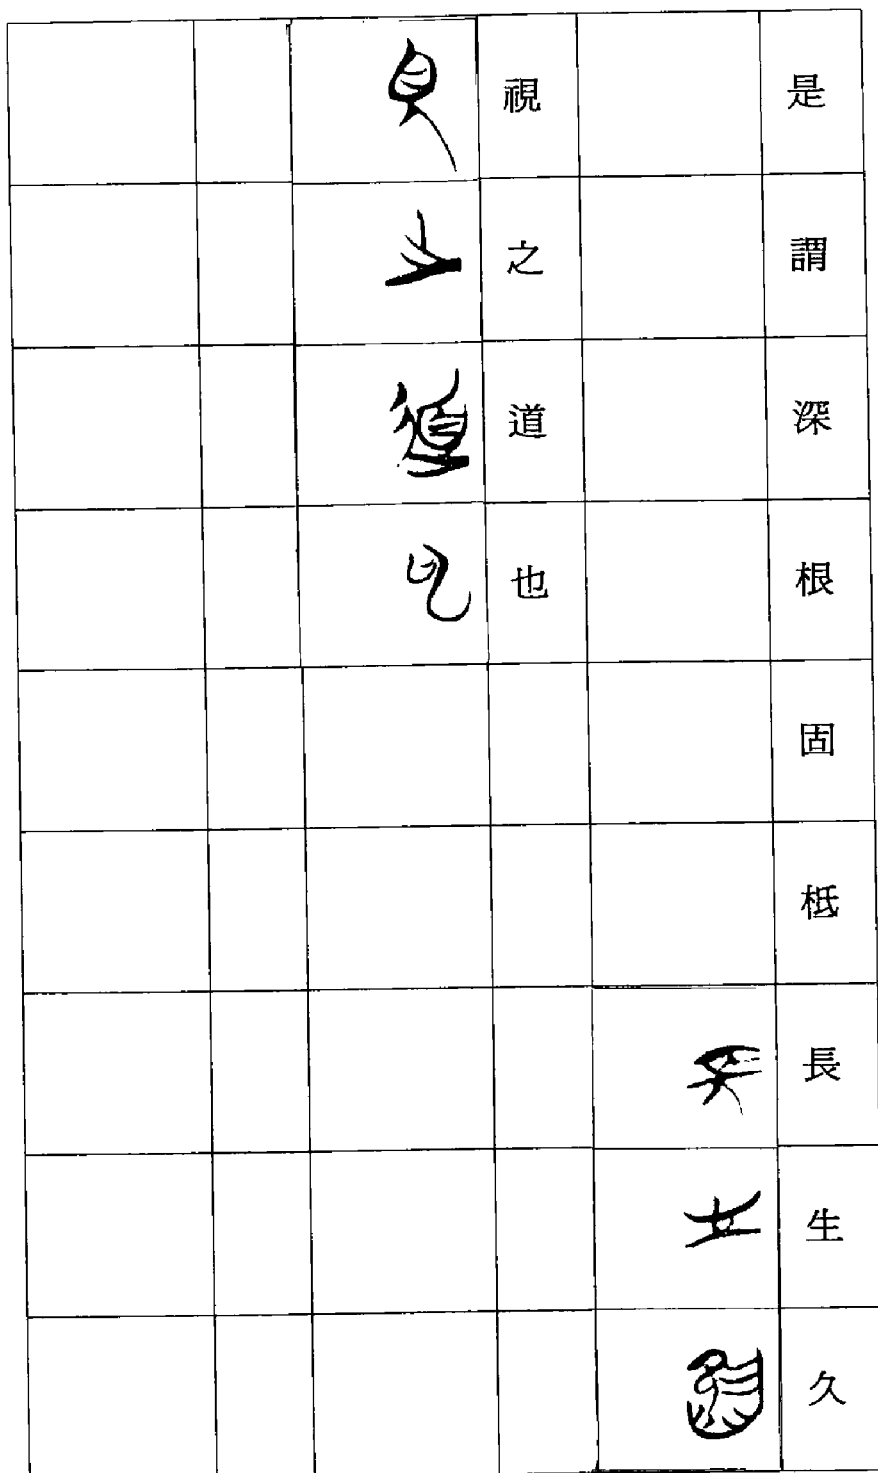 是謂深根固柢長生久
視之道也